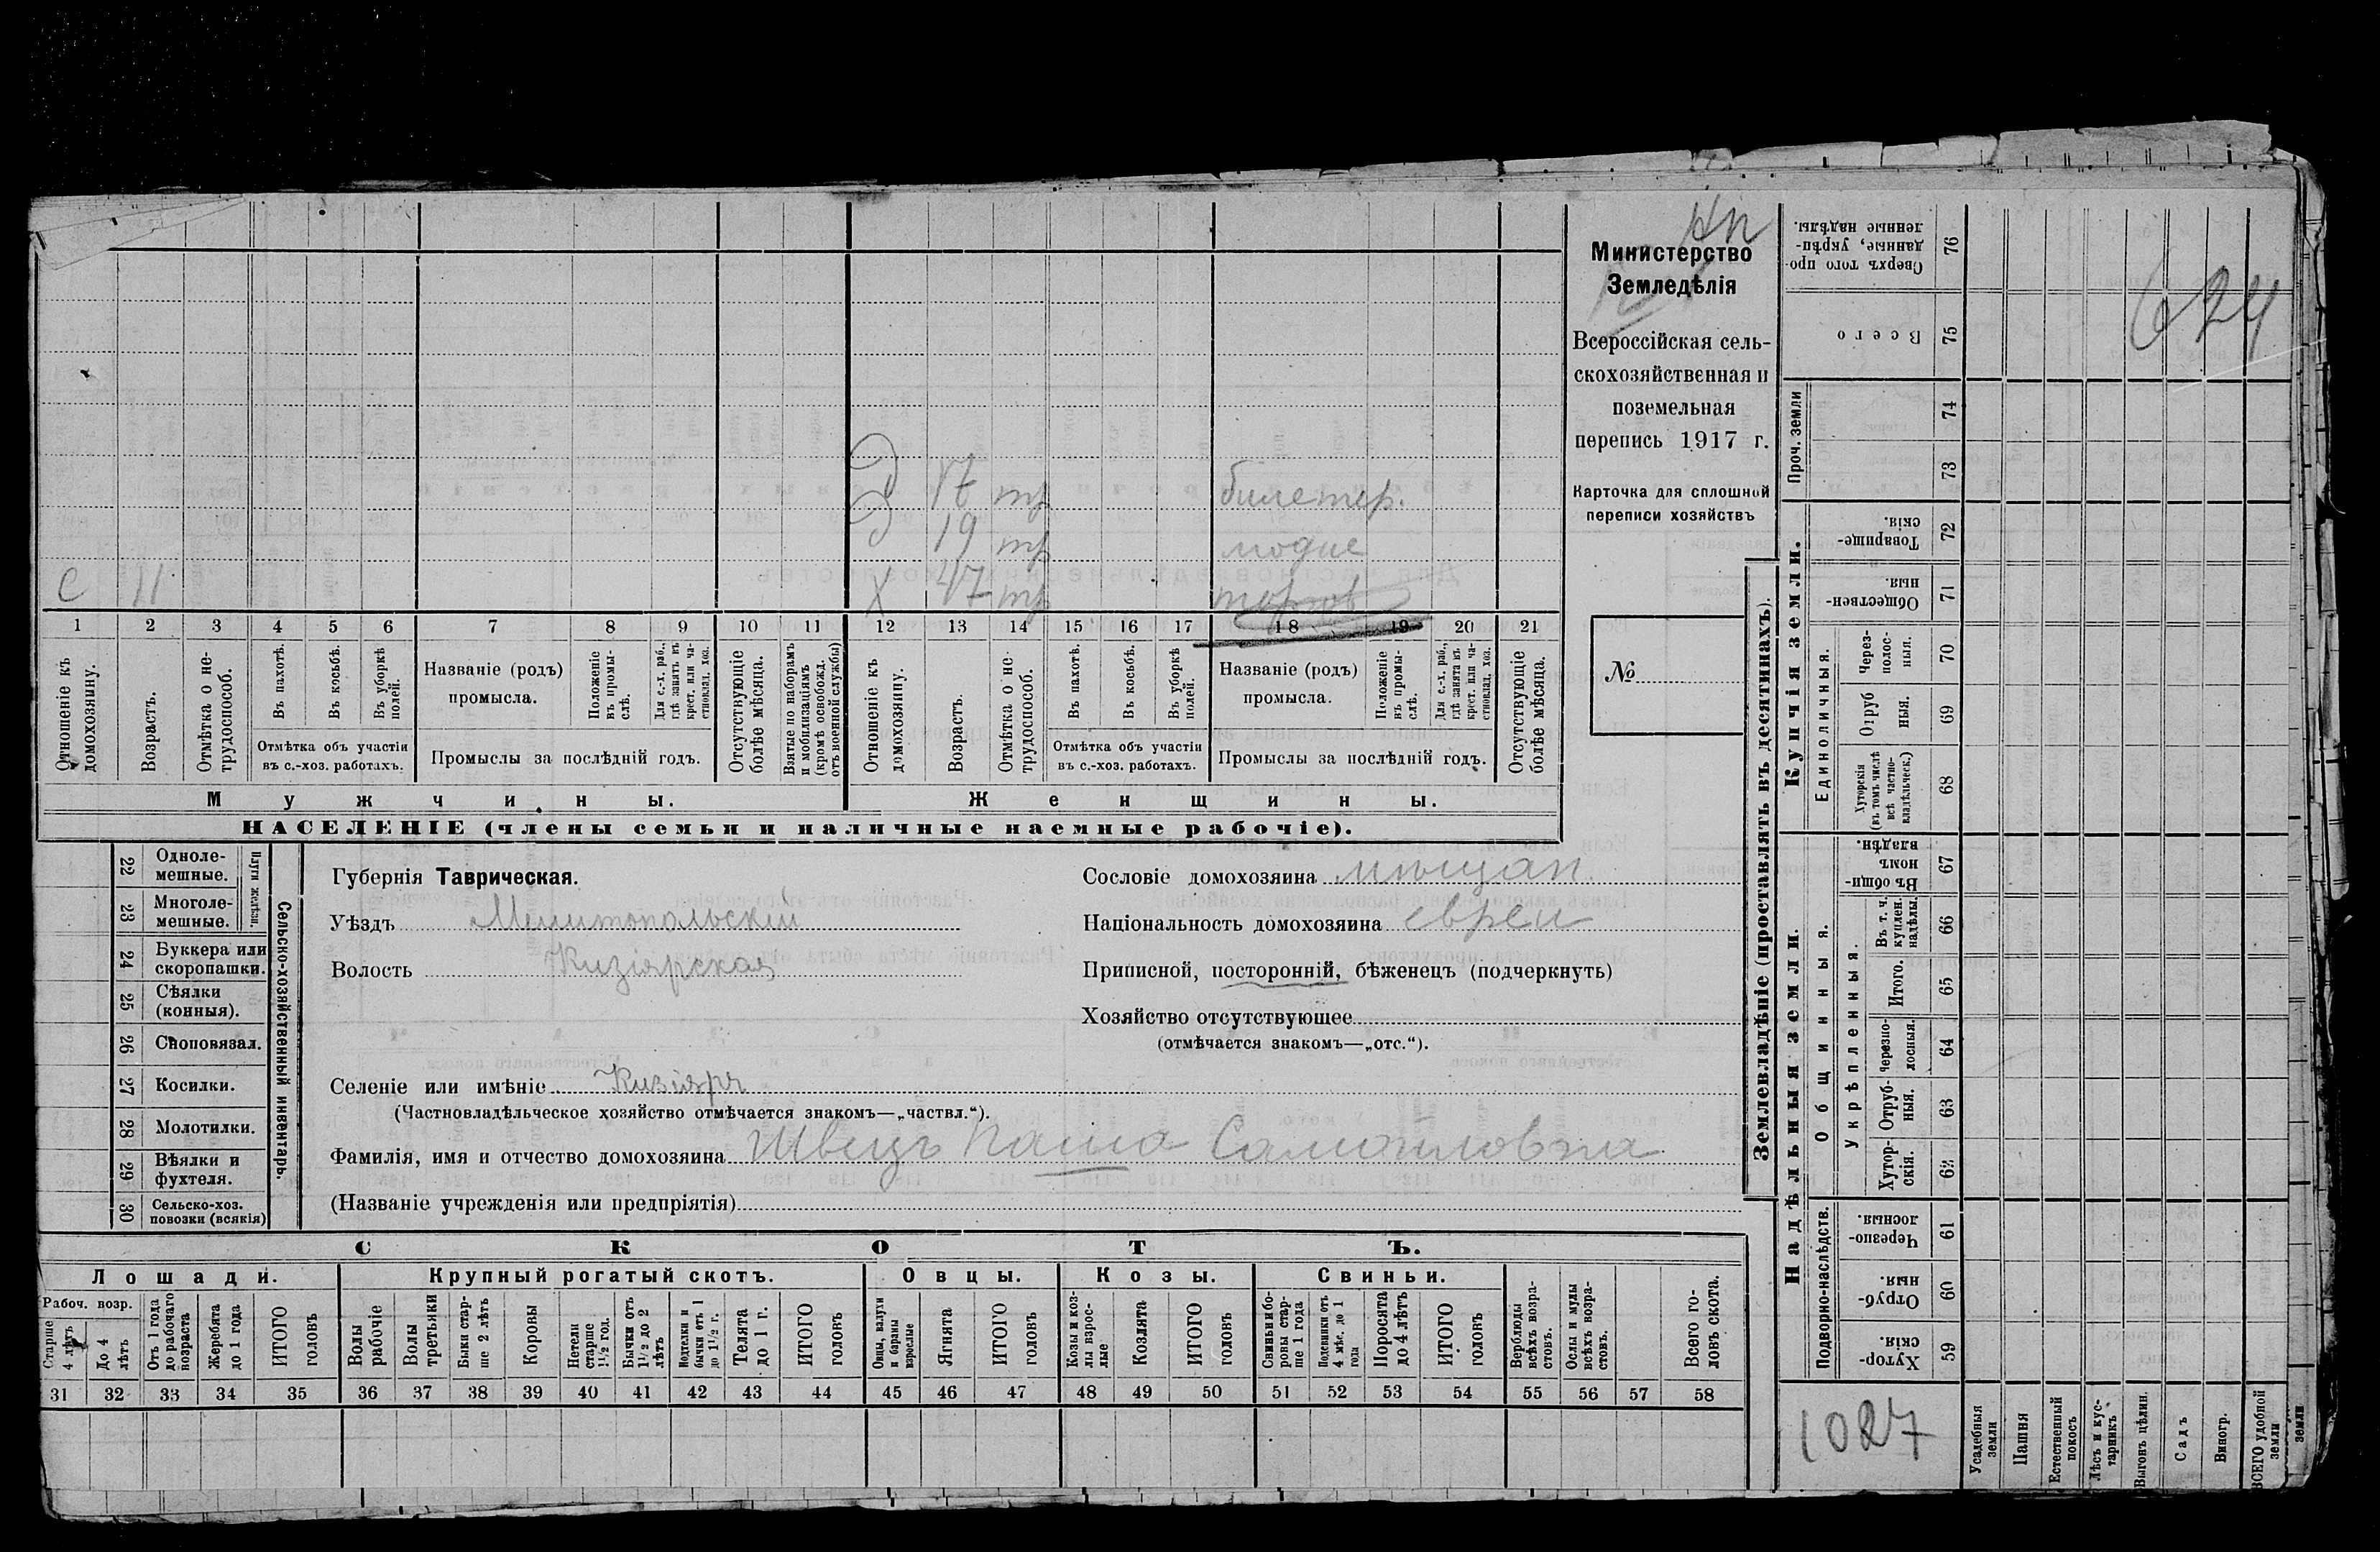 Нп
Министерство
Земледѣлія
Всероссійская сель-
скохозяйственная и
поземельная
перепись 1917 г.
Карточка для сплошной
переписи хозяйствъ
№
Д 17 тр билетер.
Д 19 тр модис
С 11 Х 47 тр торгов
1 2 3 4 5 6 7 8 9 10 11 12 13 14 15 16 17 18 19 20 21
Отношеніе къ домохозяину.
Возрастъ.
Отмѣтка о не-трудоспособ.
Въ пахотѣ.
Въ косьбѣ.
Въ уборкѣ полей.
Отмѣтка объ участіи
въ с.-хоз. работахъ.
Названіе (родъ)
промысла.
Положеніе въ промы-слѣ.
Для с.-х. раб., гдѣ занятъ въ крест. или ча-стновлад. хоз.
Промыслы за послѣдній годъ.
Отсутствующіе болѣе мѣсяца.
Взятые по наборамъ и мобилизаціямъ (кромѣ освобожд. отъ военной службы)
Отношеніе къ домохозяину.
Возрастъ.
Отмѣтка о не-трудоспособ.
Въ пахотѣ.
Въ косьбѣ.
Въ уборкѣ полей.
Отмѣтка объ участіи
въ с.-хоз. работахъ.
Названіе (родъ)
промысла.
Положеніе въ промы-слѣ.
Для с.-х. раб., гдѣ занята въ крест. или ча-стновлад. хоз.
Промыслы за послѣдній годъ.
Отсутствующіе болѣе мѣсяца.
Мужчины.
Женщины.
НАСЕЛЕНІЕ (члены семьи и наличные наемные рабочіе).
22 Одноле-мешные.
23 Многоле-мешные.
Плуги желѣзн.
24 Буккера или скоропашки.
25 Сѣялки (конныя).
26 Сноповязал.
27 Косилки.
28 Молотилки.
29 Вѣялки и фухтеля.
30 Сельско-хоз. повозки (всякія)
Сельско-хозяйственный инвентарь.
Губернія Таврическая.
Уѣздъ Мелитопольскій
Волость Кизіярская
Селеніе или имѣніе Кизіяръ
(Частновладѣльческое хозяйство отмѣчается знакомъ—„частвл.“).
Фамилія, имя и отчество домохозяина Швецъ Паша Самойловна
(Названіе учрежденія или предпріятія)
Сословіе домохозяина мѣщан.
Національность домохозяина евреи
Приписной, посторонній, бѣженецъ (подчеркнуть)
Хозяйство отсутствующее
(отмѣчается знакомъ—„отс.“).
СКОТЪ.
Лошади.
Крупный рогатый скотъ.
Овцы.
Козы.
Свиньи.
Рабоч. возр.
Старше 4 лѣтъ
До 4 лѣтъ
Отъ 1 года до рабочаго возраста
Жеребята до 1 года
ИТОГО головъ
Волы рабочіе
Волы третьяки
Быки стар-ше 2 лѣтъ
Коровы
Нетели старше 1½ год.
Бычки отъ 1½ до 2 лѣтъ
Подтелки и бычки отъ 1 до 1½ г.
Телята до 1 г.
ИТОГО головъ
Овцы, валухи и бараны взрослые
Ягнята
ИТОГО головъ
Козы и коз-лы взрос-лые
Козлята
ИТОГО головъ
Свиньи и бо-ровы стар-ше 1 года
Подсвинки отъ 4 мѣс. до 1 года
Поросята до 4 лѣтъ
ИТОГО головъ
Верблюды всѣхъ возра-стовъ.
Ослы и мулы всѣхъ возра-стовъ.
Всего го-ловъ скота.
31 32 33 34 35 36 37 38 39 40 41 42 43 44 45 46 47 48 49 50 51 52 53 54 55 56 57 58
Землевладѣніе (проставлять въ десятинахъ).
Надѣльныя земли.
Купчія земли.
Проч. земли
Сверхъ того про-данные, укрѣп-ленные надѣлы. 76
Всего 75
74
73
Товарище-скія. 72
Обществен-ныя. 71
Единоличныя.
Через-полос-ныя. 70
Отруб ныя. 69
Хуторскія (въ томъ числѣ всѣ частно-владѣльческ.) 68
Общинныя.
Въ общи-номъ владѣн. 67
Укрѣпленныя.
Въ т. ч. куплен. надѣлы. 66
Итого. 65
Черезпо-лосныя. 64
Отруб-ныя. 63
Хутор-скія. 62
Подворно-наслѣдств.
Черезпо-лосныя. 61
Отруб-ныя. 60
Хутор-скія. 59
624
1027
Усадебныя земли
Пашня
Естественный покосъ
Лѣсъ и кус-тарникъ
Выгонъ цѣлин.
Садъ
Виногр.
ВСЕГО удобной земли
земли